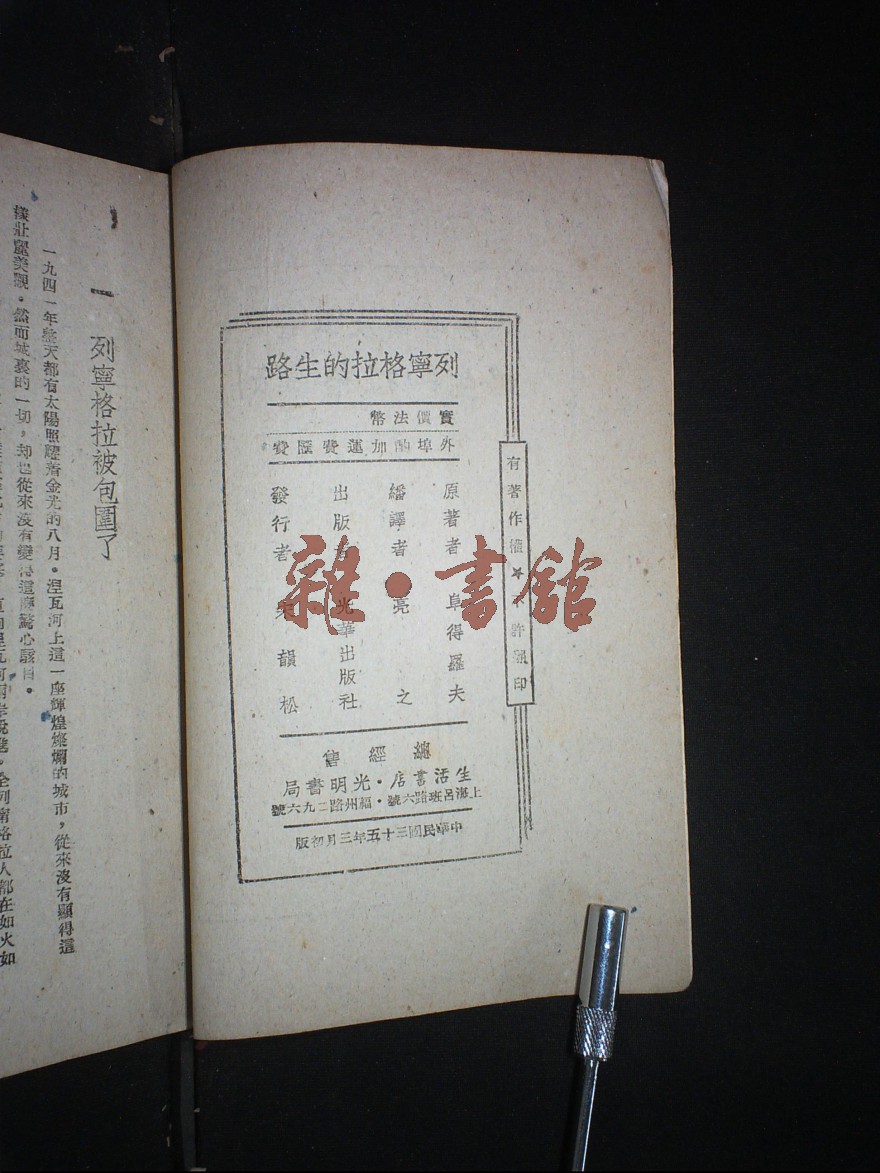 列寧格拉的生路
實價法幣
外埠酌加運費匯費
原著者 阜得羅夫
編譯者 亮之
出版者 光華出版社
發行者 宋韻松
總經售
生活書店・光明書局
上海呂班路六號・福州路二九六號
中華民國三十五年三月初版
有著作權★不許翻印
雜・書館
一 列寧格拉被包圍了
一九四一年整天都有太陽照耀着金光的八月。涅瓦河上這一座輝煌燦爛的城市,從來沒有顯得這
樣壯麗美觀。然而城裏的一切,却也從來沒有變得這麼驚心駭目。